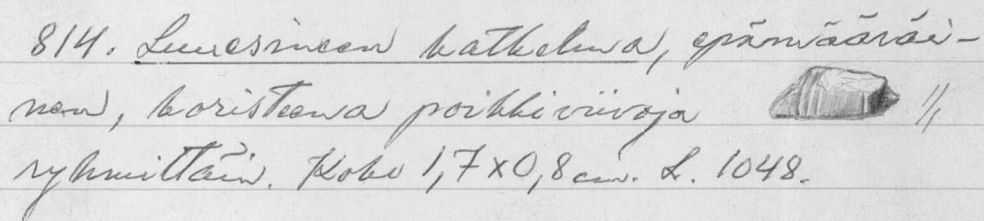 814. Luuesineen katkelma, epämääräi-
nen, koristeena poikkiviivoja 1/1
ryhmittäin. Koko 1,7x0,8 cm. L. 1048.